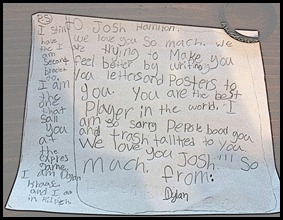 TO Josh Hamilton:
we love you so mach. we
are trying to Make you
feel better by writing
you letters and posters to
you. you are the best
Player in the world. I
am so sorry Peple bood you
and trash tallted to you
We love you Josh!!! so
mach.
from:
Dylan
PS
I still
have
the
second
bracelet
I am
the
one
that
saw
you
at
the
same
I am Dylan
and I am
in